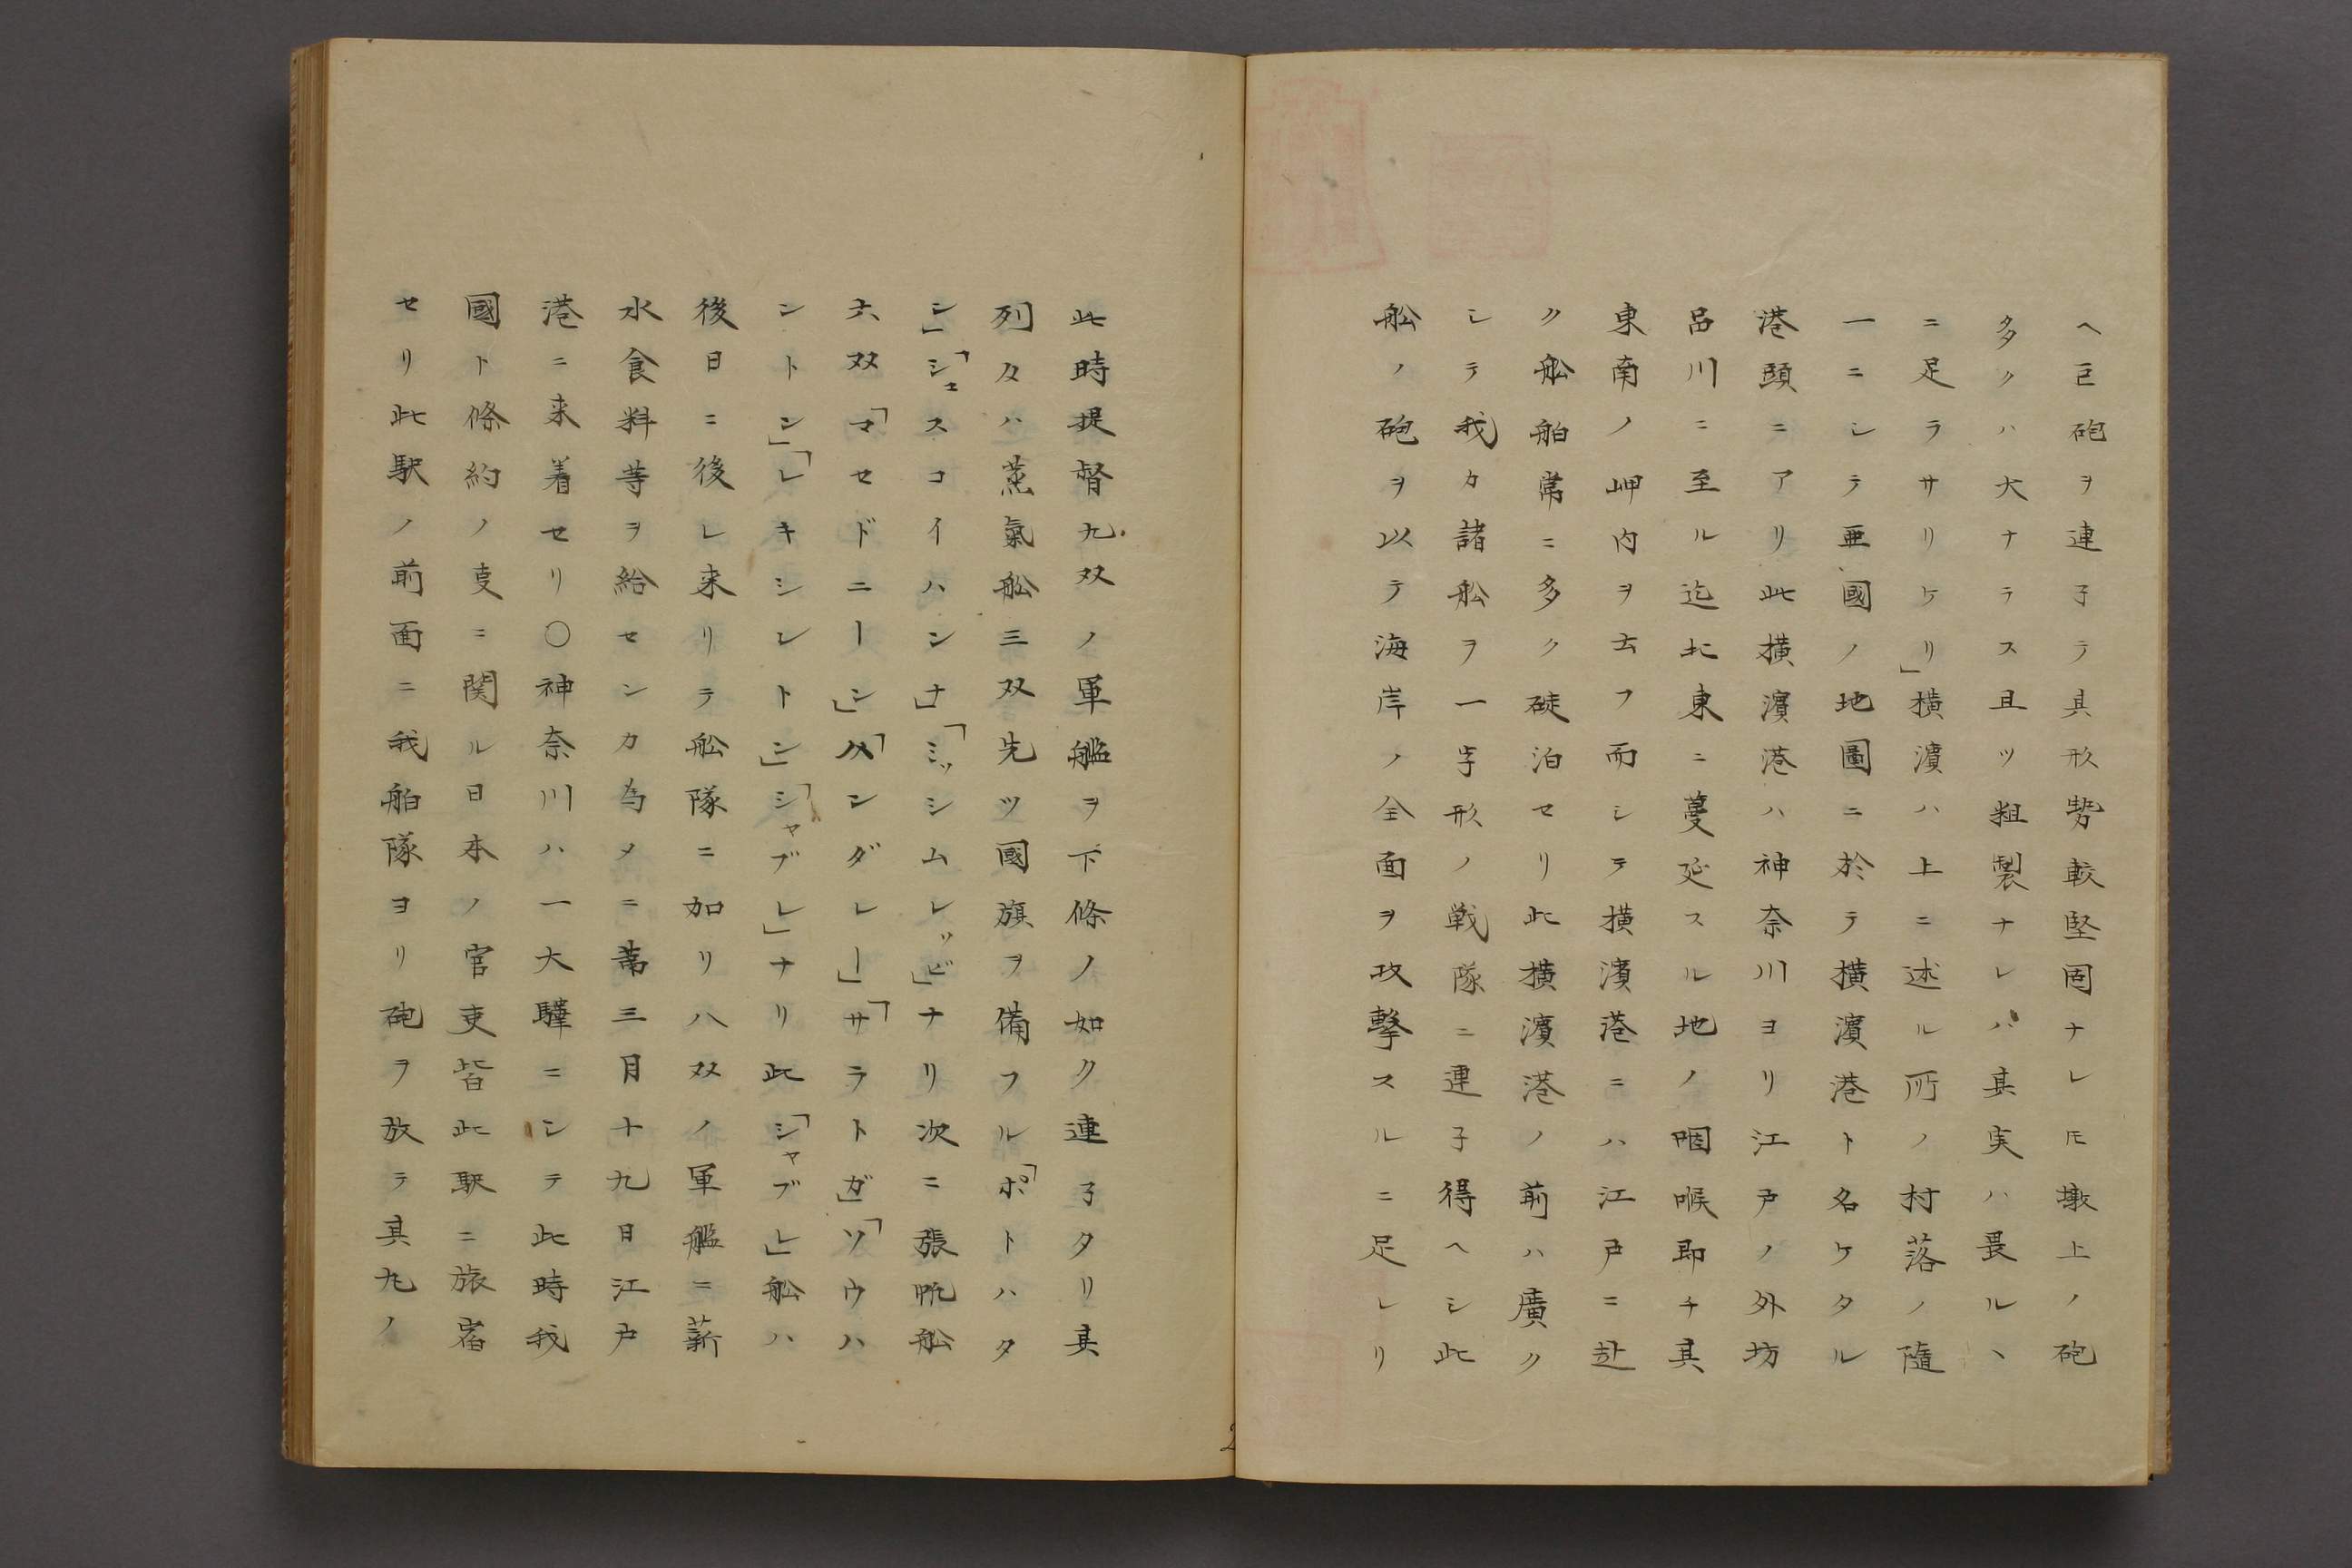 ヘ巨砲ヲ連子ラ其形勢較堅固ナレ𪜈墩上ノ砲
多クハ大ナラス且ツ粗製ナレバ其実ハ畏ルヽ
ニ足ラサリケリ」横濵ハ上ニ述ル所ノ村落ノ隨
一ニシテ亜國ノ地圖ニ於テ横濵港ト名ケタル
港頭ニアリ此横濵港ハ神奈川ヨリ江戸ノ外坊
品川ニ至ル迄北東ニ蔓延スル地ノ咽喉即チ其
東南ノ岬内ヲ云フ而シテ横濵港ニハ江戸ニ赴
ク舩舶常ニ多ク碇泊セリ此横濵港ノ前ハ廣ク
シテ我カ諸舩ヲ一字形ノ戦隊ニ連子得ヘシ此
舩ノ砲ヲ以テ海岸ノ全面ヲ攻擊スルニ足レリ
此時提督九双ノ軍艦ヲ下條ノ如ク連子タリ其
列タハ蒸氣舩三双先ツ國旗ヲ備フル「ポトハタ
ン」「シュスコイハンナ」「ミッシムレッビ」ナリ次ニ張帆舩
六双「マセドニーン」「ハンダレー」「サラトガ」「ソウハ
ントン」「レキシレトン」「シャブレ」ナリ此「シャブレ」舩ハ
後日ニ後レ来リテ舩隊ニ加リ八双ノ軍艦ニ薪
水食料等ヲ給センカ為メニ苐三月十九日江戸
港ニ来着セリ〇神奈川ハ一大驛ニシテ此時我
國ト條約ノ叓ニ関ル日本ノ官吏皆此駅ニ旅宿
セリ此駅ノ前面ニ我舶隊ヨリ砲ヲ放テ其丸ノ